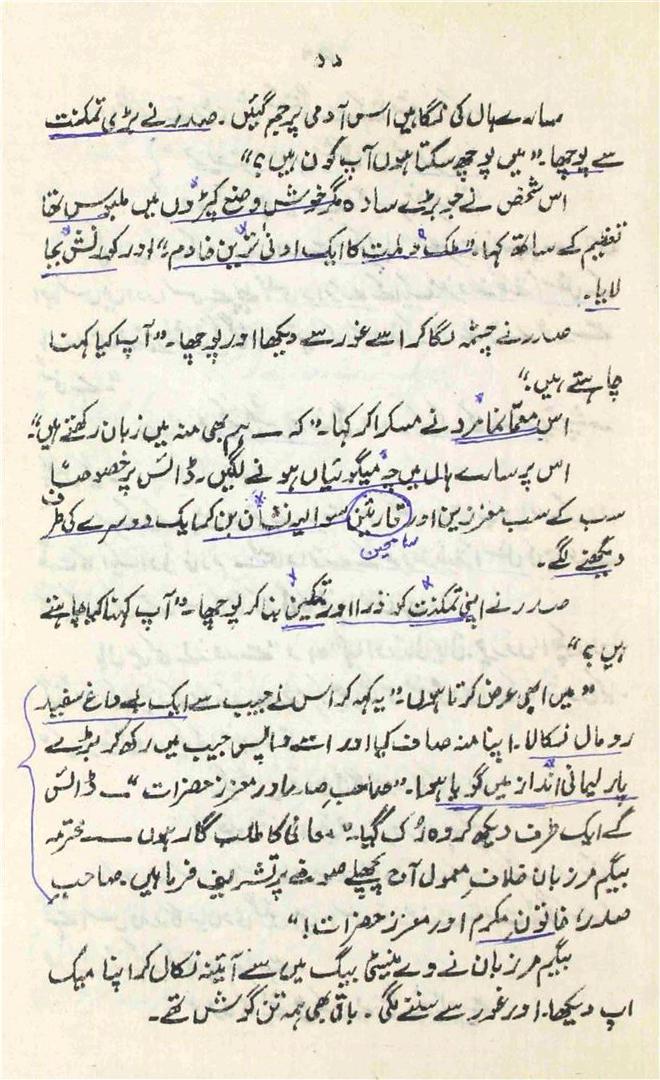 ۵۵
سارے ہال کی نگاہیں اس آدمی پر جم گئیں۔ صدر نے بڑی تمکنت
سے پوچھا۔ "میں پوچھ سکتا ہوں آپ کون ہیں؟"
اس شخص نے جو بڑے سادہ مگر خوش وضع کپڑوں میں ملبوس تھا
تعظیم کے ساتھ کہا۔ "ملک و ملت کا ایک ادنیٰ ترین خادم۔" اور کورنش بجا
لایا۔
صدر نے چشمہ لگا کر اسے غور سے دیکھا اور پوچھا۔ "آپ کیا کہنا
چاہتے ہیں۔"
اس معمّا نما مرد نے مسکرا کر کہا۔ "کہ — ہم بھی منہ میں زبان رکھتے ہیں"۔
اس پر سارے ہال میں چہ میگوئیاں ہونے لگیں۔ ڈائس پر خصوصاً
سب کے سب معززین اور قارئین سوالیہ نشان بن کر ایک دوسرے کی طرف
سامعین
دیکھنے لگے۔
صدر نے اپنی تمکنت کو ذرا اور تمکین بنا کر پوچھا۔ "آپ کہنا کیا چاہتے
ہیں؟"
"میں ابھی عرض کرتا ہوں۔" یہ کہہ کر اس نے جیب سے ایک بے داغ سفید
رومال نکالا۔ اپنا منہ صاف کیا اور اسے واپس جیب میں رکھ کر بڑے
پارلیمانی انداز میں گویا ہوا۔ "صاحبِ صدر اور معزز حضرات"۔— ڈائس
کے ایک طرف دیکھ کر وہ رُک گیا۔ "معافی کا طلب گار ہوں — محترمہ
بیگم مرزبان خلافِ معمول آج پچھلے صوفے پر تشریف فرما ہیں۔ صاحبِ
صدر، خاتونِ مکرم اور معزز حضرات!"
بیگم مرزبان نے وے نیٹی بیگ میں سے آئینہ نکال کر اپنا میک
اپ دیکھا۔ اور غور سے سننے لگی۔ باقی بھی ہمہ تن گوش تھے۔